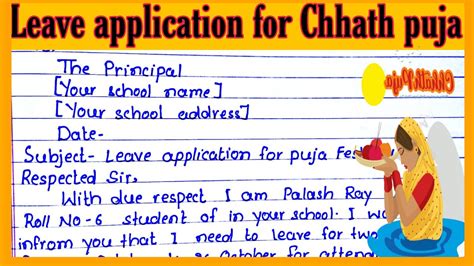 Leave application for Chhath puja
The Principal
[Your school name]
[Your school address]
Date-
Subject- Leave application for puja Fes
Respected Sir,
With due respect I am Palash Ray
Roll No-6 student of in your school. I wa
infrom you that I need to leave for two
October for atten
Chhath Puja